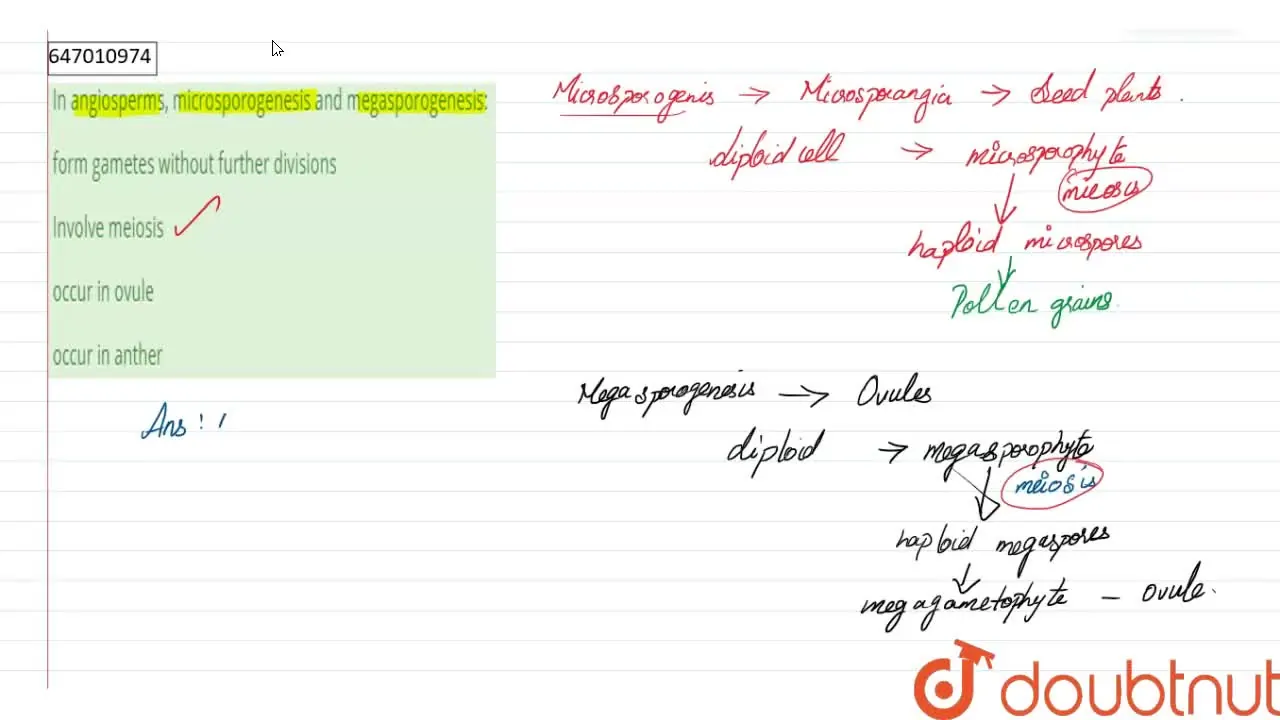 647010974
In angiosperms, microsporogenesis and megasporogenesis:
form gametes without further divisions
Involve meiosis
occur in ovule
occur in anther
Ans : (
Microsporogenis → Microsporangia → Seed plants .
diploid cell → microsporophyte
mieosis
haploid microspores
Pollen grains.
Megasporogenesis → Ovules
diploid → megasporophyte
meiosis
haploid megaspores
megagametophyte – ovule.
doubtnut